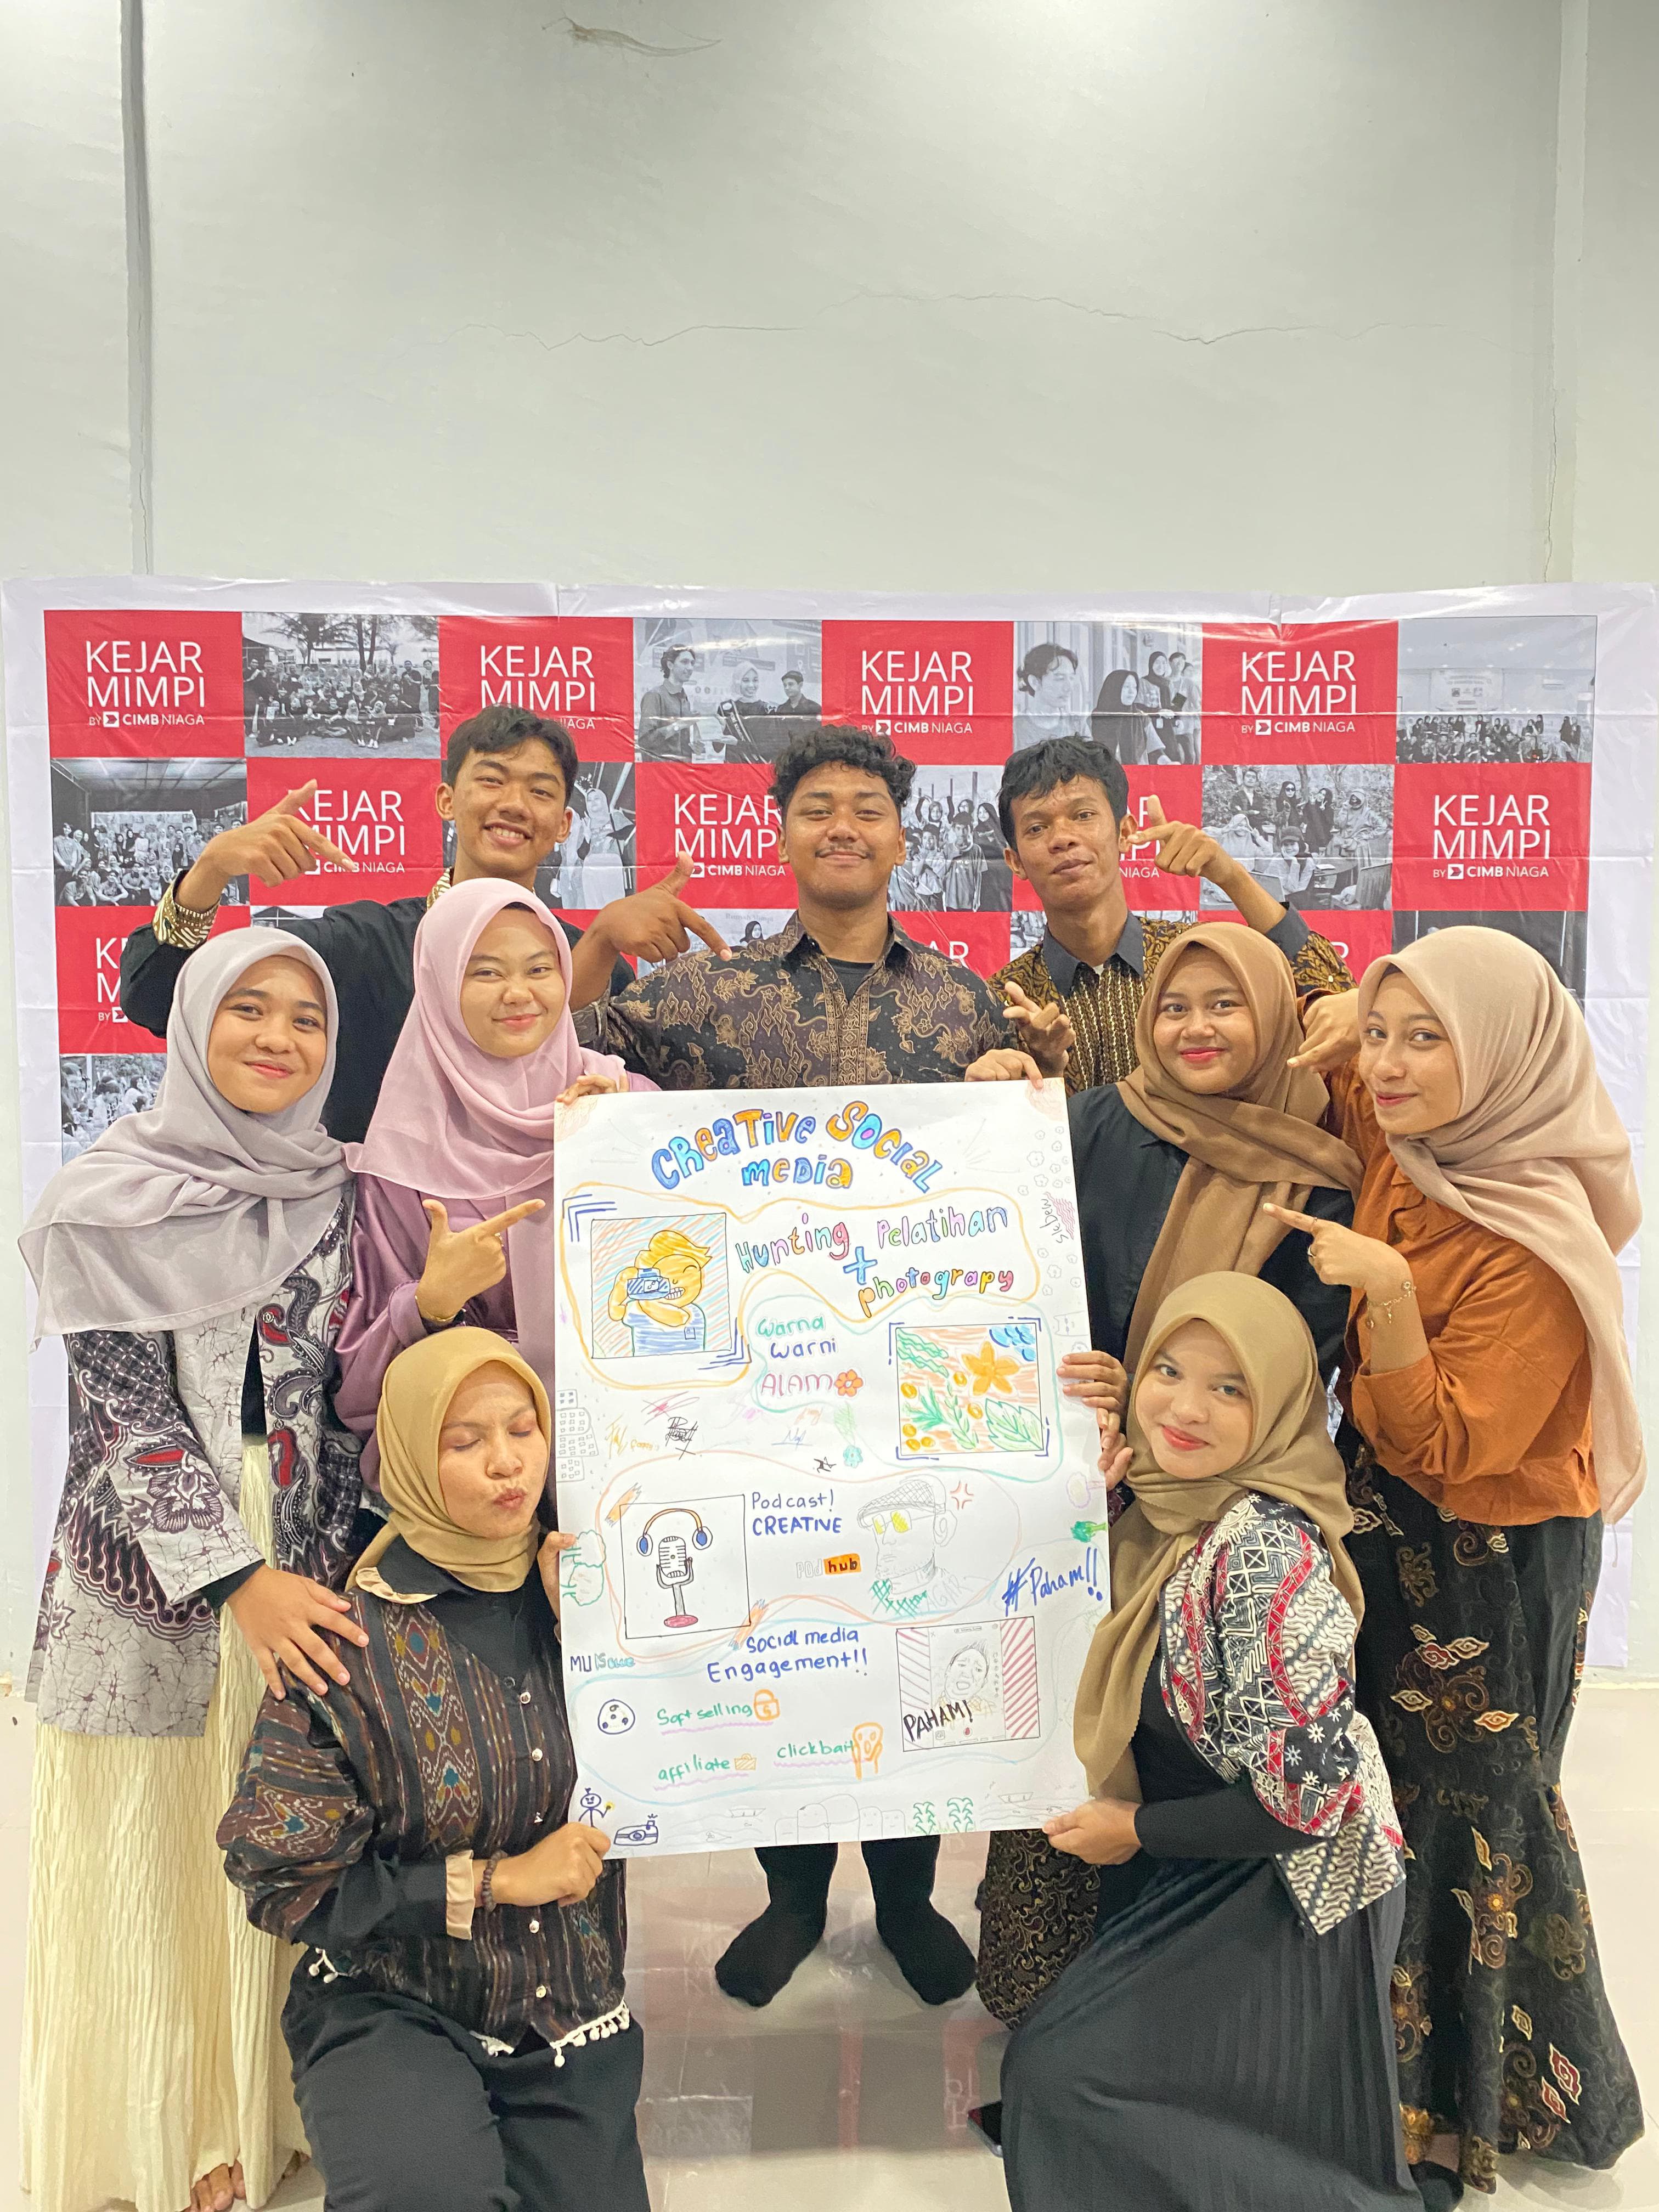 KEJAR
MIMPI
BY CIMB NIAGA
KEJAR
MIMPI
NIAGA
KEJAR
MIMPI
BY CIMB NIAGA
KEJAR
MIMPI
BY CIMB NIAGA
KEJAR
MIMPI
CIMB NIAGA
KEJAR
MIMPI
BY CIMB NIAGA
KEJAR
MIMPI
BY CIMB NIAGA
CREATIVE SOCIAL
MEDIA
Hunting Pelatihan
+
photograpy
Warna
Warni
ALAM
SuDewi
Podcast!
CREATIVE
PODhub
#Paham!!
Social media
Engagement!!
Soft selling
PAHAM!
affiliate
clickbait